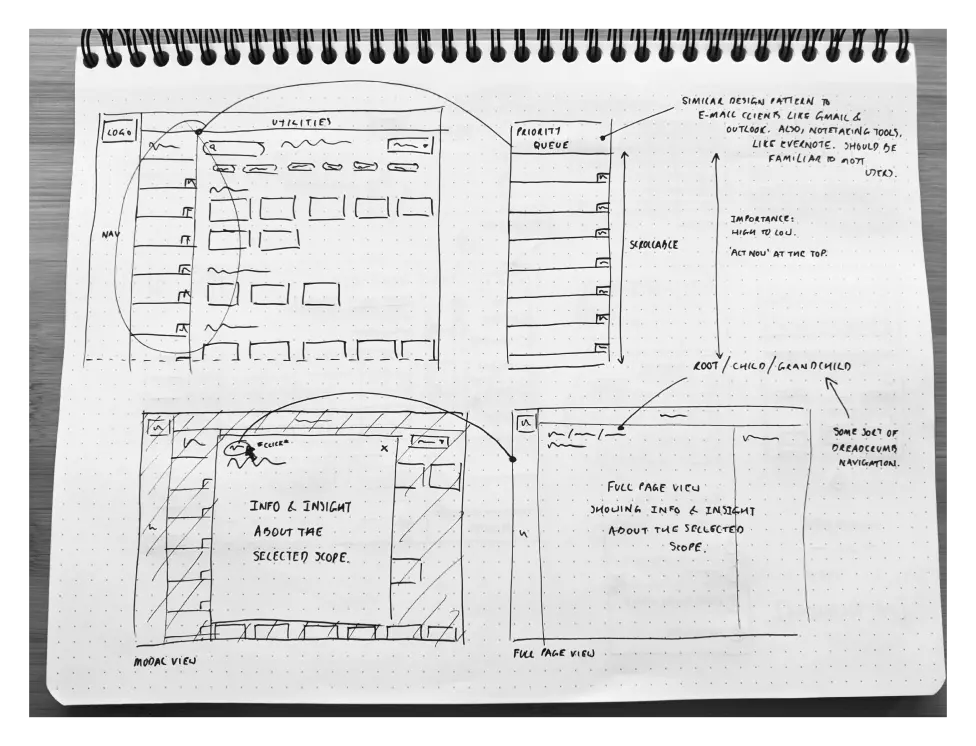 LOGO
UTILITIES
NAV
PRIORITY
QUEUE
SIMILAR DESIGN PATTERN TO
E-MAIL CLIENTS LIKE GMAIL &
OUTLOOK. ALSO, NOTETAKING TOOLS,
LIKE EVERNOTE. SHOULD BE
FAMILIAR TO MOST
USERS.
SCROLLABLE
IMPORTANCE:
HIGH TO LOW.
'ACT NOW' AT THE TOP.
ROOT/CHILD/GRANDCHILD
SOME SORT OF
BREADCRUMB
NAVIGATION.
*CLICK*
X
INFO & INSIGHT
ABOUT THE
SELECTED SCOPE.
MODAL VIEW
FULL PAGE VIEW
SHOWING INFO & INSIGHT
ABOUT THE SELLECTED
SCOPE.
FULL PAGE VIEW